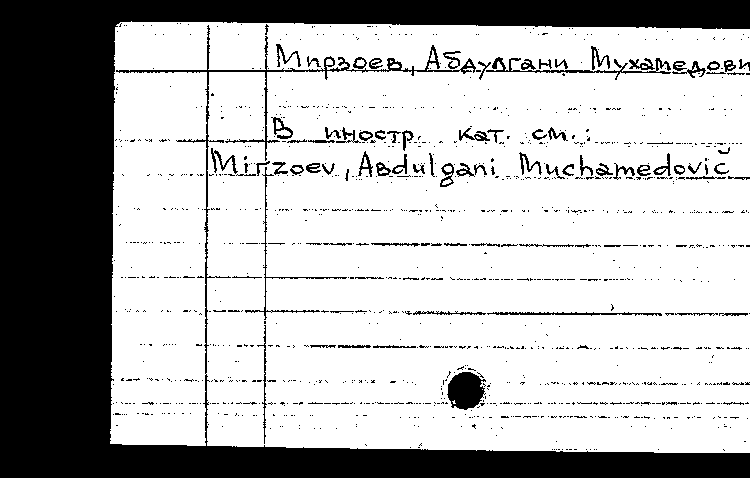 Мирзоев, Абдулгани Мухамедови
В иностр. кат. см.:
Mirzoev, Abdulgani Muchamedovič